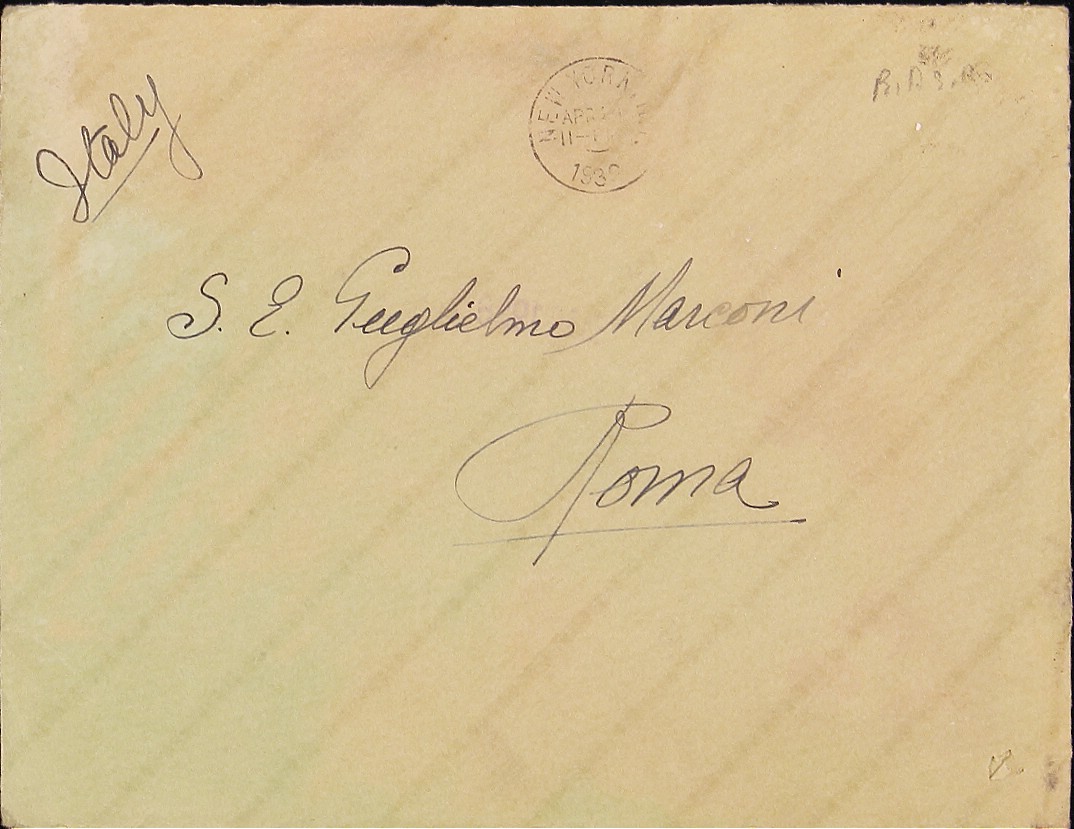 Italy
NEW YORK, N.Y.
APR
11-
193
S. E. Guglielmo Marconi
Roma